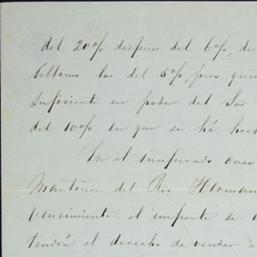 del 20% despues del 6%, de
último los del 5%, pero que
suficiente en poder del Sor
del 100% en que se há hech
En el inesperado caso
Martinez del Rio Herman
vencimiento el importe de
tendrá el derecho de vender